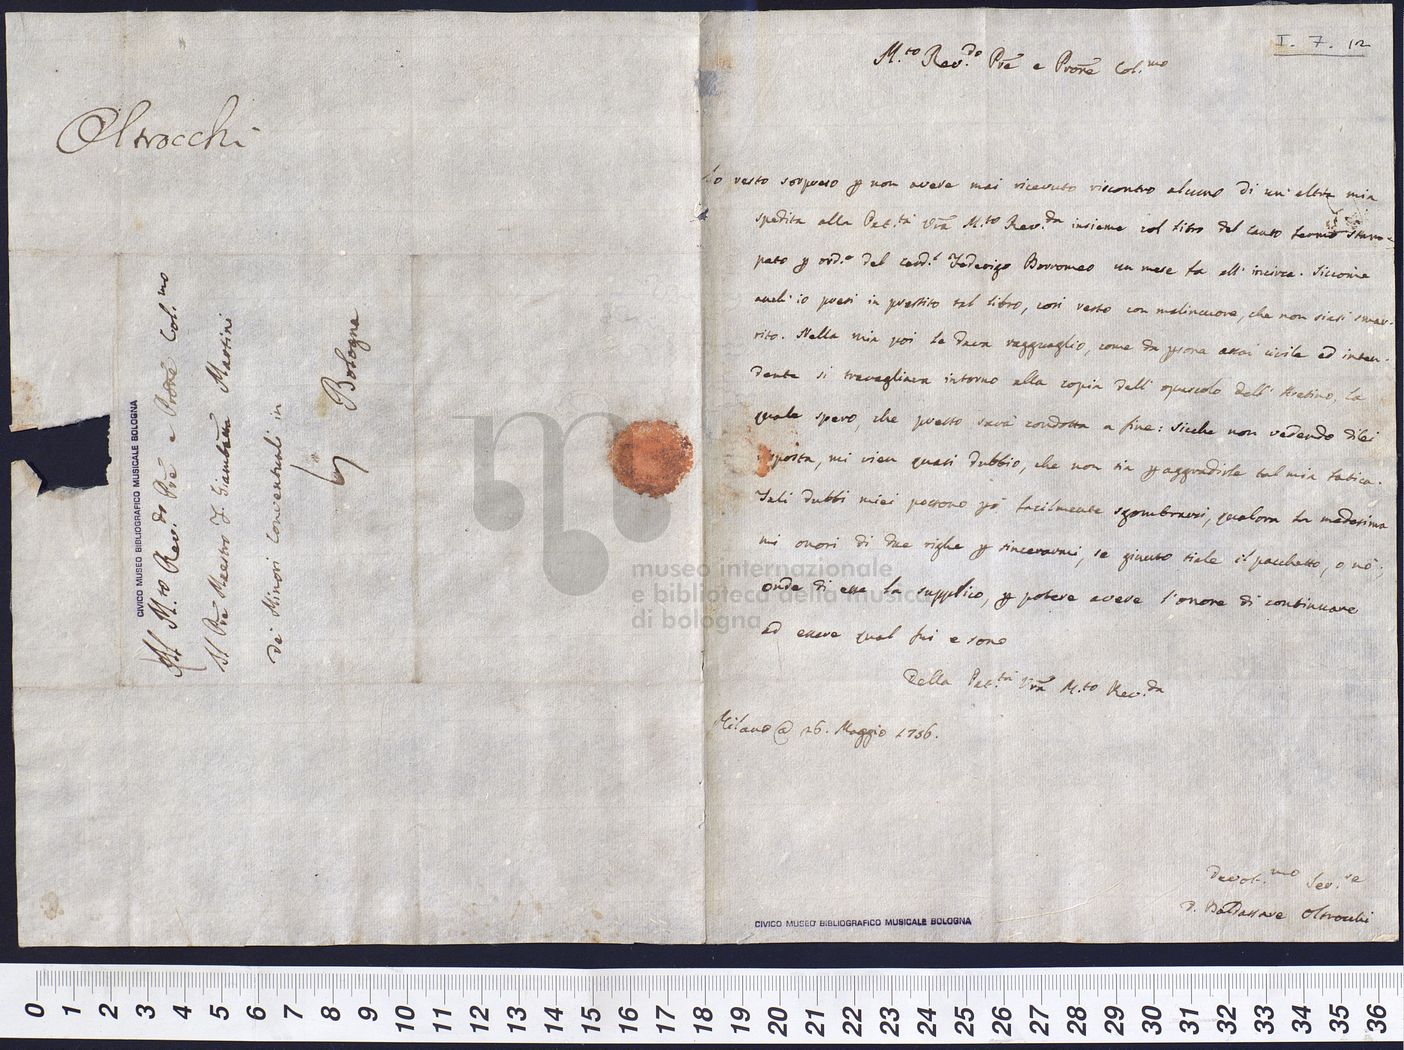 Oltrocchi
Al M.to Rev.do Pre e Prone Col.mo
Al Pre Maestro F. Giambatta Martini
de' Minori Conventuali in
Bologna
CIVICO MUSEO BIBLIOGRAFICO MUSICALE BOLOGNA
I. 7. 12
M.to Rev.do Pre e Prone Col.mo
Io resto sorpreso p non avere mai ricevuto riscontro alcuno di un' altra mia
spedita alla Pat.tà Vra M.to Rev.da insieme col libro del canto fermo stam-
pato p ord.e del Card.l Federigo Borromeo un mese fa all' incirca. Siccome
anch' io presi in prestito tal libro, così resto con malincuore, che non siasi smar-
rito. Nella mia poi le dava ragguaglio, come da psona assai civile ed inten-
dente si travagliava intorno alla copia dell' opuscolo dell' Aretino, la
quale spero, che presto sarà condotta a fine: sicche non vedendo di lei
risposta, mi vien quasi dubbio, che non sia p aggradirle tal mia fatica.
Tali dubbi miei possono pò facilmente sgombrarsi, qualora la medesima
mi onori di due righe p sincerarmi, se giunto siale il pacchetto, o nò;
onde di esse la supplico, p potere avere l'onore di continuare
ad essere qual fui e sono
Della Pat.tà Vra M.to Rev.da
Milano @ 26. Maggio 1756.
Devot.mo Ser.re
D. Baldassare Oltrocchi
CIVICO MUSEO BIBLIOGRAFICO MUSICALE BOLOGNA
museo internazionale
e biblioteca della musica
di bologna
0 1 2 3 4 5 6 7 8 9 10 11 12 13 14 15 16 17 18 19 20 21 22 23 24 25 26 27 28 29 30 31 32 33 34 35 36